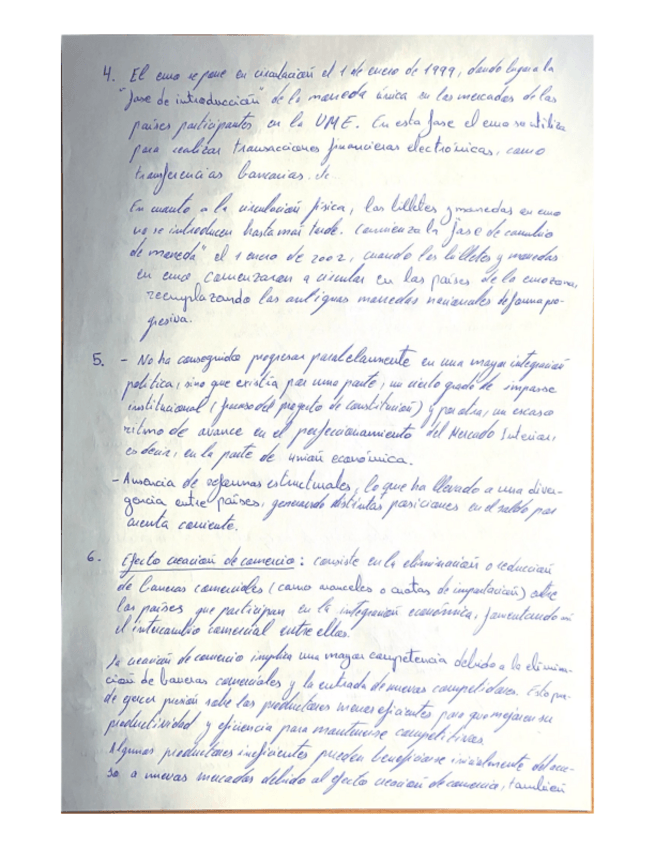 4. El euro se pone en circulación el 1 de enero de 1999, dando lugar a la
"fase de introducción" de la moneda única en los mercados de los
países participantes en la UME. En esta fase el euro se utiliza
para realizar transacciones financieras electrónicas, como
transferencias bancarias.
En cuanto a la circulación física, los billetes y monedas en euro
no se introducen hasta más tarde. Comienza la fase de cambio
de moneda" el 1 enero de 2002, cuando los billetes y monedas
en euro comenzaron a circular en los países de la eurozona,
reemplazando las antiguas monedas nacionales de forma pro-
gresiva.
5. - No ha conseguido progresar paralelamente en una mayor integración
política, sino que existía por una parte, un cierto grado de impasse
institucional (fracaso del proyecto de constitución) y por otra, un escaso
ritmo de avance en el perfeccionamiento del Mercado Interior,
es decir, en la parte de unión económica.
- Ausencia de reformas estructurales, lo que ha llevado a una diver-
gencia entre países, generando distintas posiciones en el saldo por
cuenta corriente.
6. Efecto creación de comercio: consiste en la eliminación o reducción
de barreras comerciales (como aranceles o cuotas de importación) entre
los países que participan en la integración económica, fomentando así
el intercambio comercial entre ellos.
La creación de comercio implica una mayor competencia debido a la elimina-
ción de barreras comerciales y la entrada de nuevos competidores. Esto pue-
de ejercer presión sobre los productores menos eficientes para que mejoren su
productividad y eficiencia para mantenerse competitivos.
Algunos productores ineficientes pueden beneficiarse inicialmente del acce-
so a nuevos mercados debido al efecto creación de comercio, también